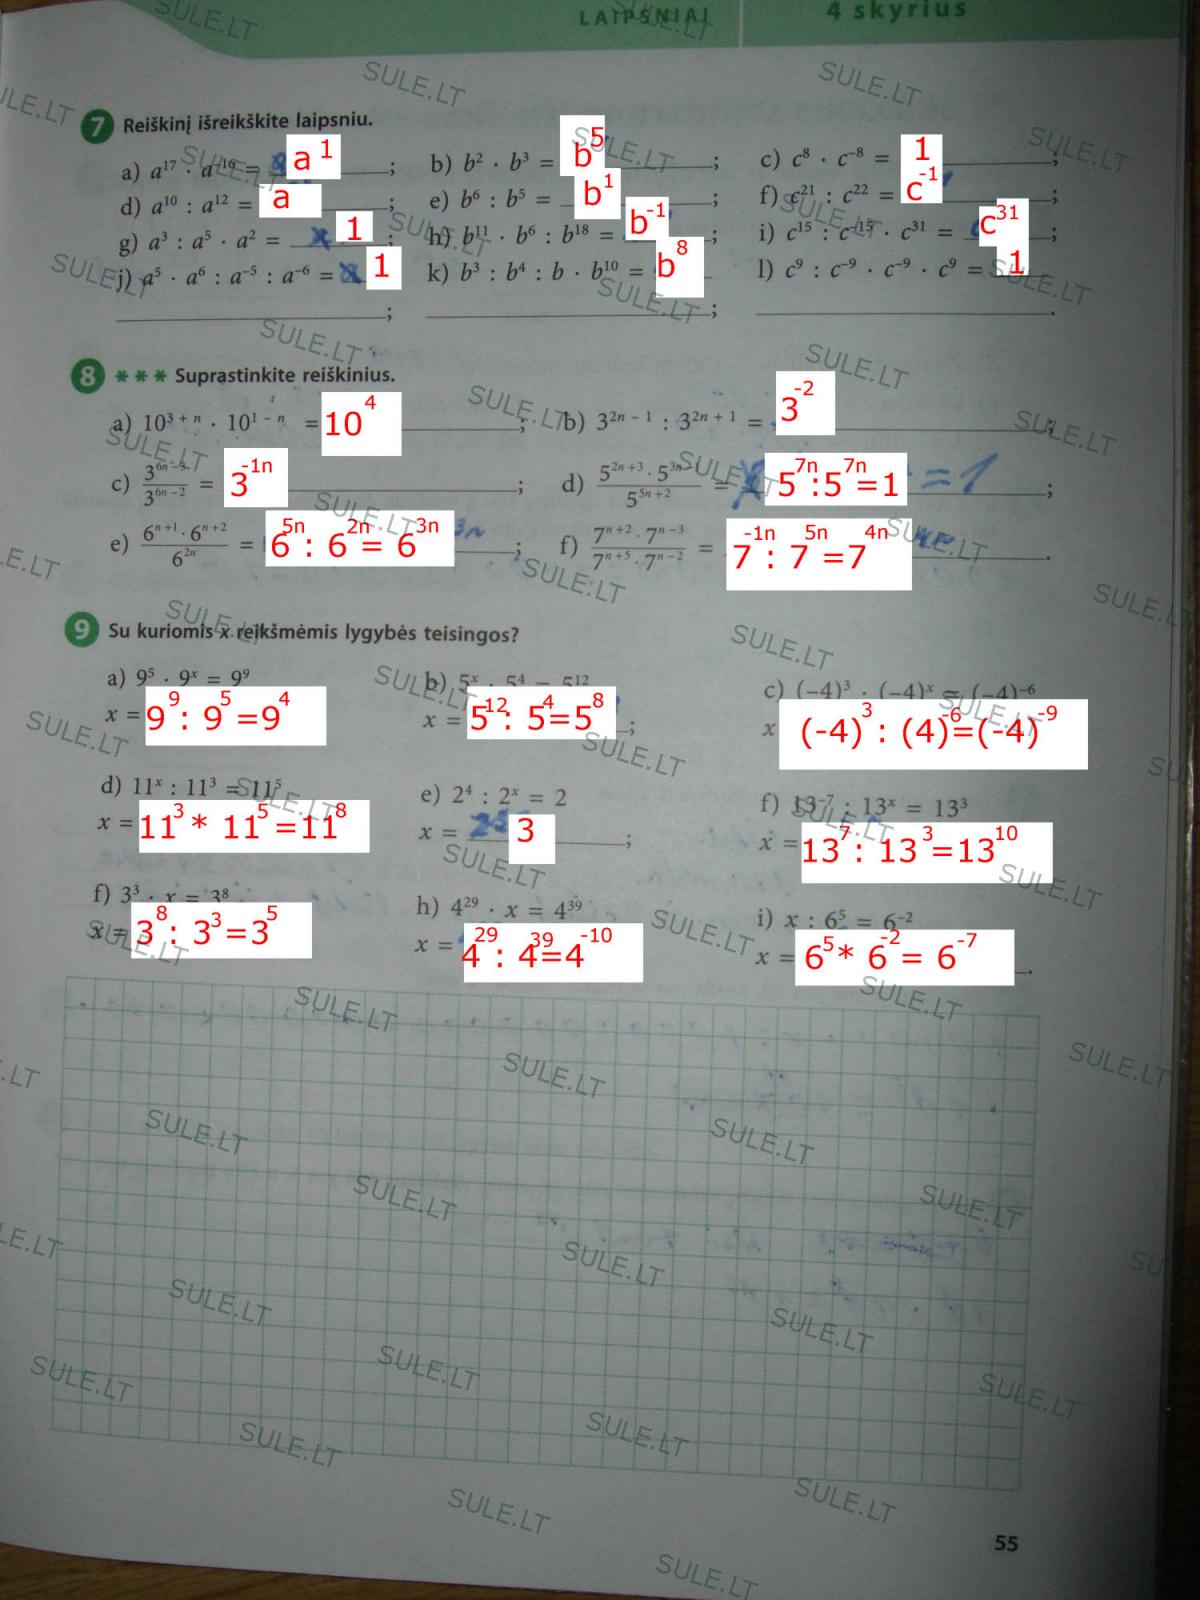 LAIPSNIAI 4 skyrius
7 Reiškinį išreikškite laipsniu.
a) a¹⁷ · a⁻¹⁶ = a¹ ; b) b² · b³ = b⁵ ; c) c⁸ · c⁻⁸ = 1 ;
d) a¹⁰ : a¹² = a ; e) b⁶ : b⁵ = b¹ ; f) c²¹ : c²² = c⁻¹ ;
g) a³ : a⁵ · a² = 1 ; h) b¹¹ · b⁶ : b¹⁸ = b⁻¹ ; i) c¹⁵ : c⁻¹⁵ · c³¹ = c³¹ ;
j) a⁵ · a⁶ : a⁻⁵ : a⁻⁶ = 1 ; k) b³ : b⁴ : b · b¹⁰ = b⁸ ; l) c⁹ : c⁻⁹ · c⁻⁹ · c⁹ = 1 .
8 *** Suprastinkite reiškinius.
a) 10³⁺ⁿ · 10¹⁻ⁿ = 10⁴ ; b) 3²ⁿ⁻¹ : 3²ⁿ⁺¹ = 3⁻² ;
c) 3⁶ⁿ⁻³ / 3⁶ⁿ⁻² = 3⁻¹ⁿ ; d) 5²ⁿ⁺³ · 5³ⁿ⁻¹ / 5⁵ⁿ⁺² = 5⁷ⁿ:5⁷ⁿ=1 =1 ;
e) 6ⁿ⁺¹ · 6ⁿ⁺² / 6²ⁿ = 6⁵ⁿ : 6²ⁿ = 6³ⁿ 3n ; f) 7ⁿ⁺² · 7ⁿ⁻³ / 7ⁿ⁺⁵ · 7ⁿ⁻² = 7⁻¹ⁿ : 7⁵ⁿ =7⁴ⁿ .
9 Su kuriomis x reikšmėmis lygybės teisingos?
a) 9⁵ · 9ˣ = 9⁹ b) 5ˣ · 5⁴ = 5¹² c) (−4)³ · (−4)ˣ = (−4)⁻⁶
x = 9⁹ : 9⁵ =9⁴ x = 5¹² : 5⁴=5⁸ ; x (-4)³ : (4)⁻⁶=(-4)⁻⁹
d) 11ˣ : 11³ = 11⁵ e) 2⁴ : 2ˣ = 2 f) 13⁻⁷ : 13ˣ = 13³
x = 11³ * 11⁵ =11⁸ x = 3 ; x = 13⁷ : 13³=13¹⁰
f) 3³ · x = 3⁸ h) 4²⁹ · x = 4³⁹ i) x : 6⁵ = 6⁻²
x = 3⁸ : 3³=3⁵ x = 4²⁹ : 4³⁹=4⁻¹⁰ x = 6⁵* 6⁻² = 6⁻⁷ .
55
SULE.LT